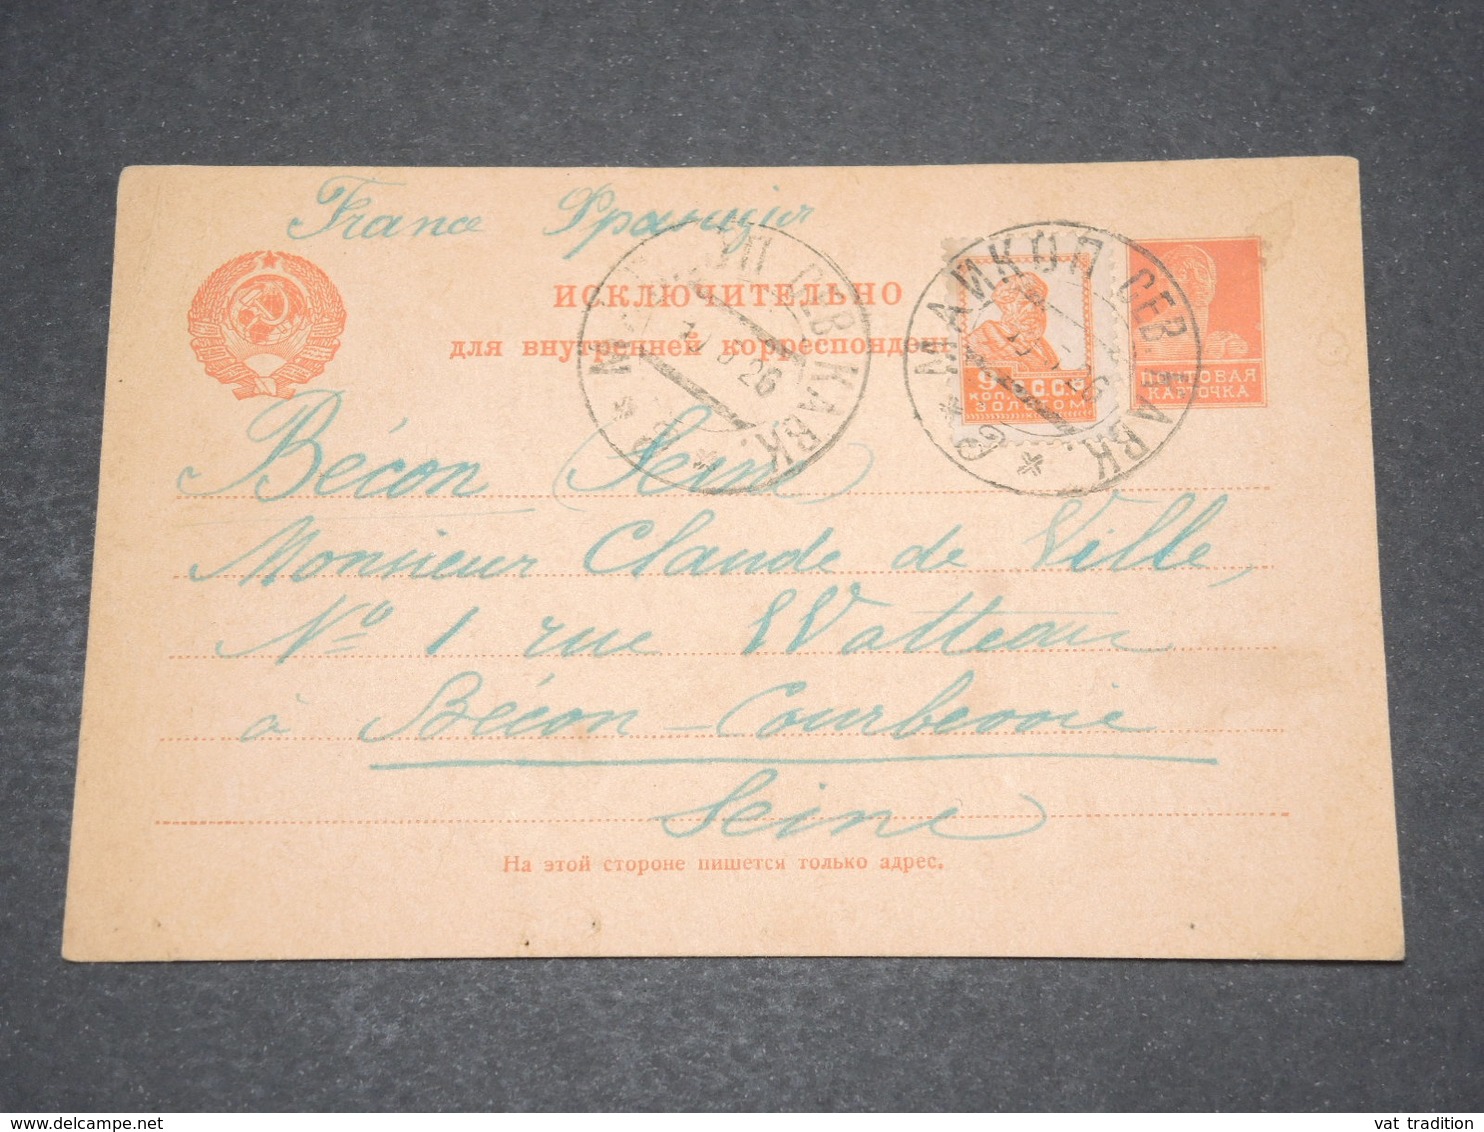 France Франція
ИСКЛЮЧИТЕЛЬНО
для внутренней корреспонден
МАЙКОП СЕВ. КАВК.
26
МАЙКОП СЕВ. КАВК.
26
9
КОП. С.С.С.Р.
ЗОЛОТОМ
ПОЧТОВАЯ
КАРТОЧКА
Bécon Seine
Monsieur Claude de Ville,
No 1 rue Watteau
à Bécon-Courbevoie
Seine
На этой стороне пишется только адрес.
www.delcampe.net
vat tradition